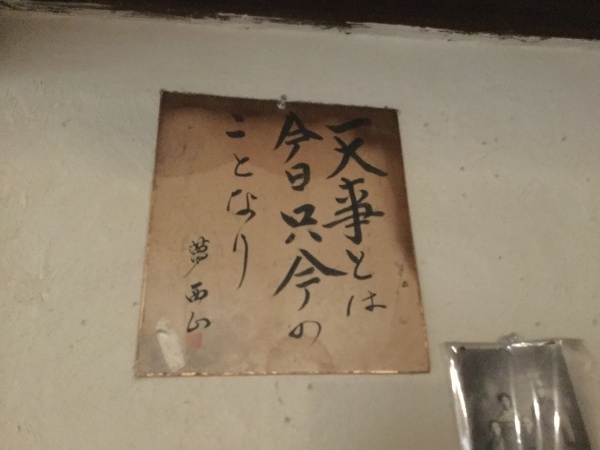 一大事とは
今日只今の
ことなり
西山